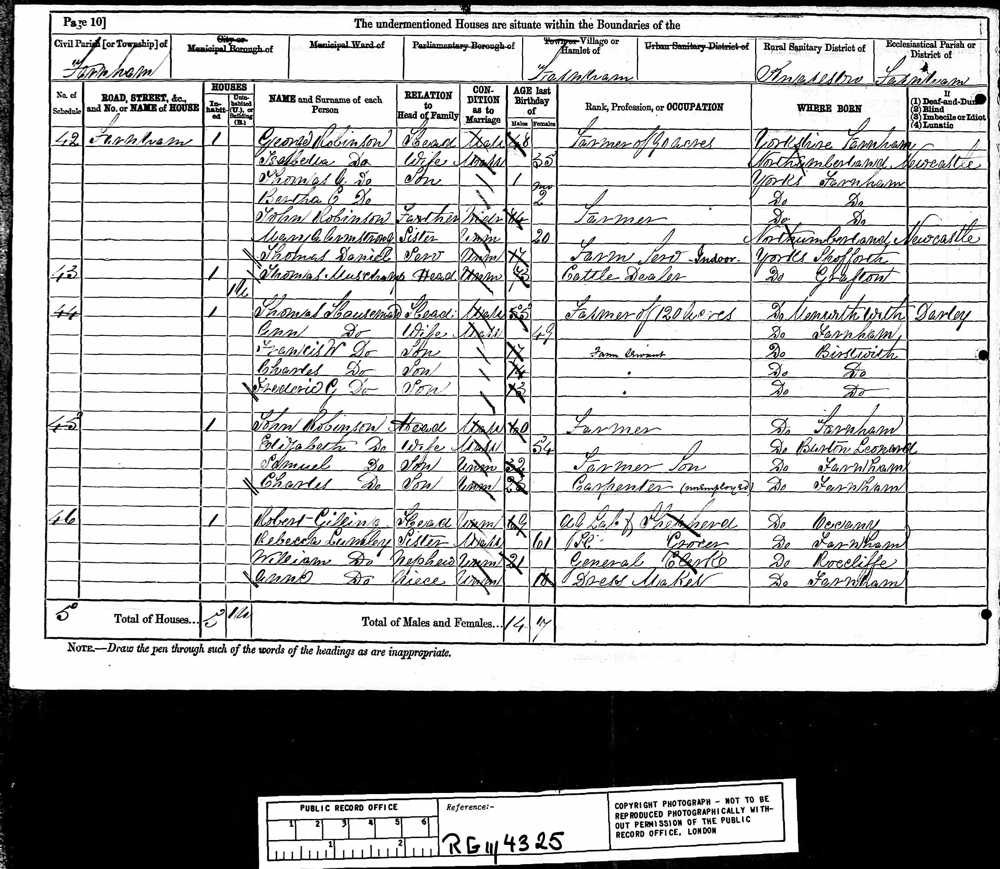 Page 10] The undermentioned Houses are situate within the Boundaries of the
Civil Parish [or Township] of City or Municipal Borough of Municipal Ward of Parliamentary Borough of Town or Village or Hamlet of Urban Sanitary District of Rural Sanitary District of Ecclesiastical Parish or District of
Farnham Farnham Farnham
No. of Schedule ROAD, STREET, &c., and No. or NAME of HOUSE HOUSES Inhabited Uninhabited (U.), or Building (B.) NAME and Surname of each Person RELATION to Head of Family CONDITION as to Marriage AGE last Birthday of Males Females Rank, Profession, or OCCUPATION WHERE BORN If (1) Deaf-and-Dumb (2) Blind (3) Imbecile or Idiot (4) Lunatic
42 Farnham 1 George Robinson Head Mar 48 Farmer of 90 acres Yorkshire Farnham
Isabella Do Wife Mar 35 Northumberland Newcastle
Thomas G. Do Son 1 Yorks Farnham
Bertha E Do mo 2 Do Do
John Robinson Farther Widr Farmer Do Do
Mary A Armstrong Sister Unm 20 Northumberland Newcastle
Thomas Daniel Serv Unm 17 Farm Serv - Indoor Yorks Spofforth
43 1 Thomas Muschamp Head Unm Cattle Dealer Do Grafton
1 U
44 1 Thomas Houseman Head Mar 53 Farmer of 120 acres Do Menwithwith Darley
Ann Do Wife Mar 49 Do Farnham
Francis W Do Son 17 Farm Servant Do Birstwith
Charles Do Son 14 " Do Do
Frederic G Do Son 13 " Do Do
45 1 John Robinson Head Mar 60 Farmer Do Farnham
Elizabeth Do Wife Mar 54 Do Burton Leonard
Samuel Do Son Unm 32 Farmer Son Do Farnham
Charles Do Son Unm 25 Carpenter (unemployed) Do Farnham
46 1 Robert Gilling Head Unm 69 Ag Lab & Shepherd Do
Rebecca Lumley Sister Mar 61 Grocer Do Farnham
William Do Nephew Unm 21 General Clerk Do Roccliffe
Anne Do Niece Unm Dress Maker Do Farnham
5 Total of Houses... 5 1 U Total of Males and Females... 14 7
NOTE.—Draw the pen through such of the words of the headings as are inappropriate.
PUBLIC RECORD OFFICE
1 2 3 4 5 6
1 2
Reference:-
RG 11/4325
COPYRIGHT PHOTOGRAPH - NOT TO BE
REPRODUCED PHOTOGRAPHICALLY WITH-
OUT PERMISSION OF THE PUBLIC
RECORD OFFICE, LONDON